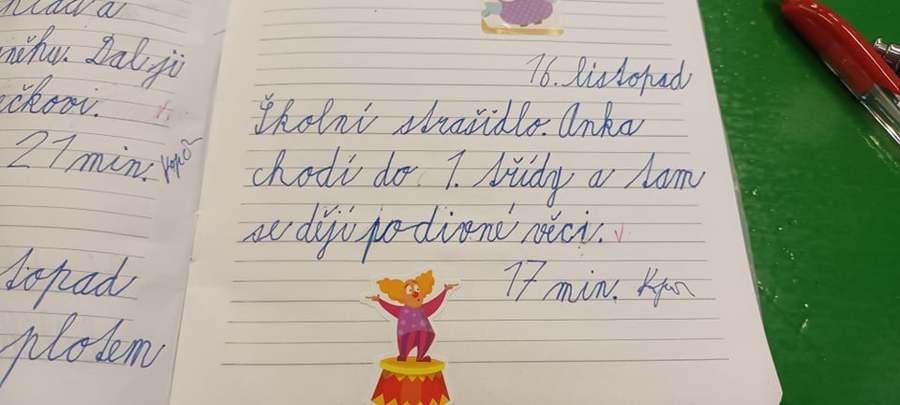 něhu. Dal ji
čkovi.
21 min.
topad
plotem
16. listopad
Školní strašidlo. Anka
chodí do 1. třídy a tam
se dějí podivné věci.
17 min.